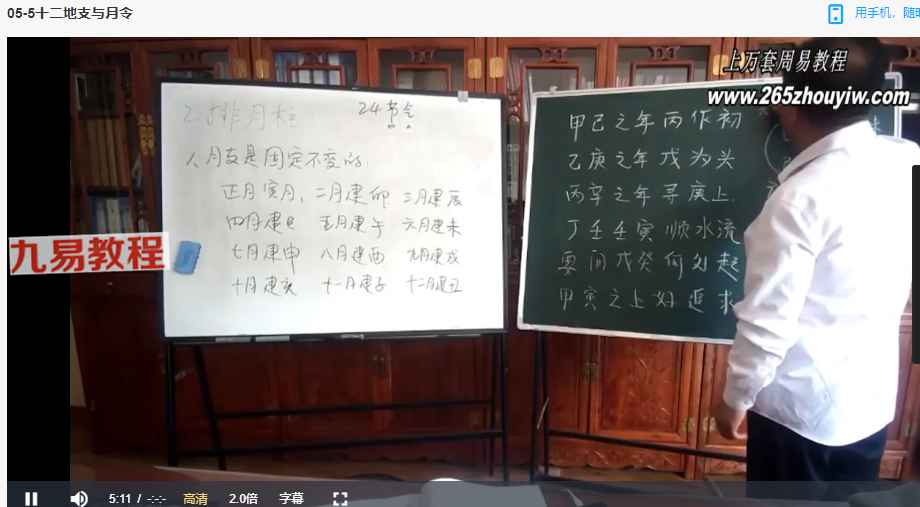 05-5十二地支与月令
用手机，随
上万套周易教程
www.265zhouyiw.com
2、排月柱 24节令
人月支是固定不变的.
正月寅月、二月建卯 三月建辰
四月建巳 五月建午 六月建未
七月建申 八月建酉 九月建戌
十月建亥 十一月建子 十二月建丑
九易教程
甲己之年丙作初
乙庚之年戊为头
丙辛之年寻庚上
丁壬壬寅顺水流
要问戊癸何处起
甲寅之上好追求
5:11 / -:-:-
高清
2.0倍
字幕